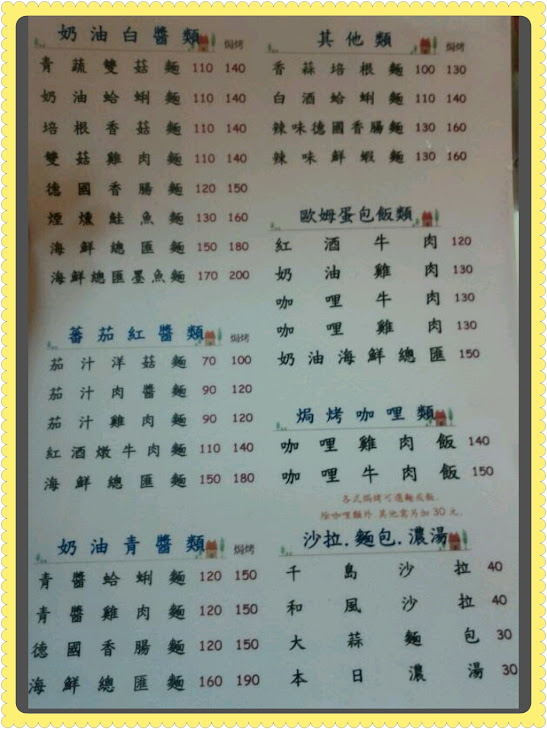 奶油白醬類 焗烤
青蔬雙菇麵 110 140
奶油蛤蜊麵 110 140
培根香菇麵 110 140
雙菇雞肉麵 110 140
德國香腸麵 120 150
煙燻鮭魚麵 130 160
海鮮總匯麵 150 180
海鮮總匯墨魚麵 170 200
蕃茄紅醬類 焗烤
茄汁洋菇麵 70 100
茄汁肉醬麵 90 120
茄汁雞肉麵 90 120
紅酒燉牛肉麵 110 140
海鮮總匯麵 150 180
奶油青醬類 焗烤
青醬蛤蜊麵 120 150
青醬雞肉麵 120 150
德國香腸麵 120 150
海鮮總匯麵 160 190
其他類 焗烤
香蒜培根麵 100 130
白酒蛤蜊麵 130 160
辣味德國香腸麵 130 160
辣味鮮蝦麵 130 160
歐姆蛋包飯類
紅酒牛肉 120
奶油雞肉 130
咖哩牛肉 130
咖哩雞肉 130
奶油海鮮總匯 150
焗烤咖哩類
咖哩雞肉飯 140
咖哩牛肉飯 150
各式焗烤可選麵或飯.
除咖哩類外.其他需另加30元.
沙拉.麵包.濃湯
千島沙拉 40
和風沙拉 40
大蒜麵包 30
本日濃湯 30